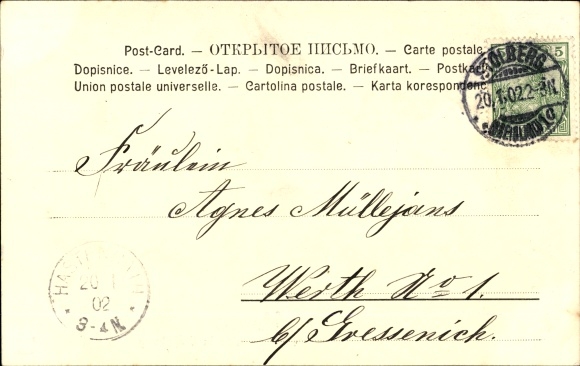 Post-Card. — ОТКРЫТОЕ ПИСЬМО. — Carte postale
Dopisnice. — Levelező-Lap. — Dopisnica. — Briefkaart. — Postka
Union postale universelle. — Cartolina postale. — Karta korespondenc
5
STOLBERG
20.1.02.2-3N.
* (RHEINLAND) 1 c
Fräulein
Agnes Müllejans
Werth No 1.
b/ Gressenich.
20 1
02
3-4N.